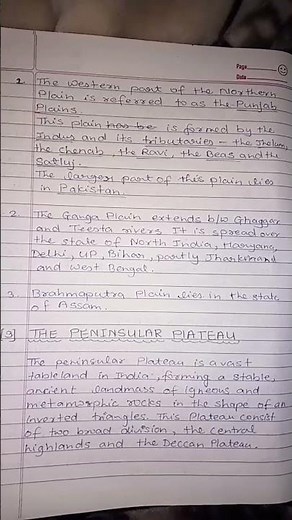 Page
Date
1. The western part of the Northern
Plain is referred to as the Punjab
Plains.
This plain has be is formed by the
Indus and its tributaries - the Jhelum,
the Chenab, the Ravi, the Beas and the
Satluj.
The larger part of this plain lies
in Pakistan.
2. The Ganga Plain extends b/w Ghaggar
and Teesta rivers. It is spread over
the state of North India, Haryana,
Delhi, UP, Bihar, partly Jharkhand
and West Bengal.
3. Brahmaputra Plain lies in the state
of Assam.
[3] THE PENINSULAR PLATEAU
The peninsular Plateau is a vast
tableland in India, forming a stable,
ancient landmass of igneous and
metamorphic rocks in the shape of an
inverted triangles. This Plateau consist
of two broad division, the central
highlands and the Deccan Plateau.